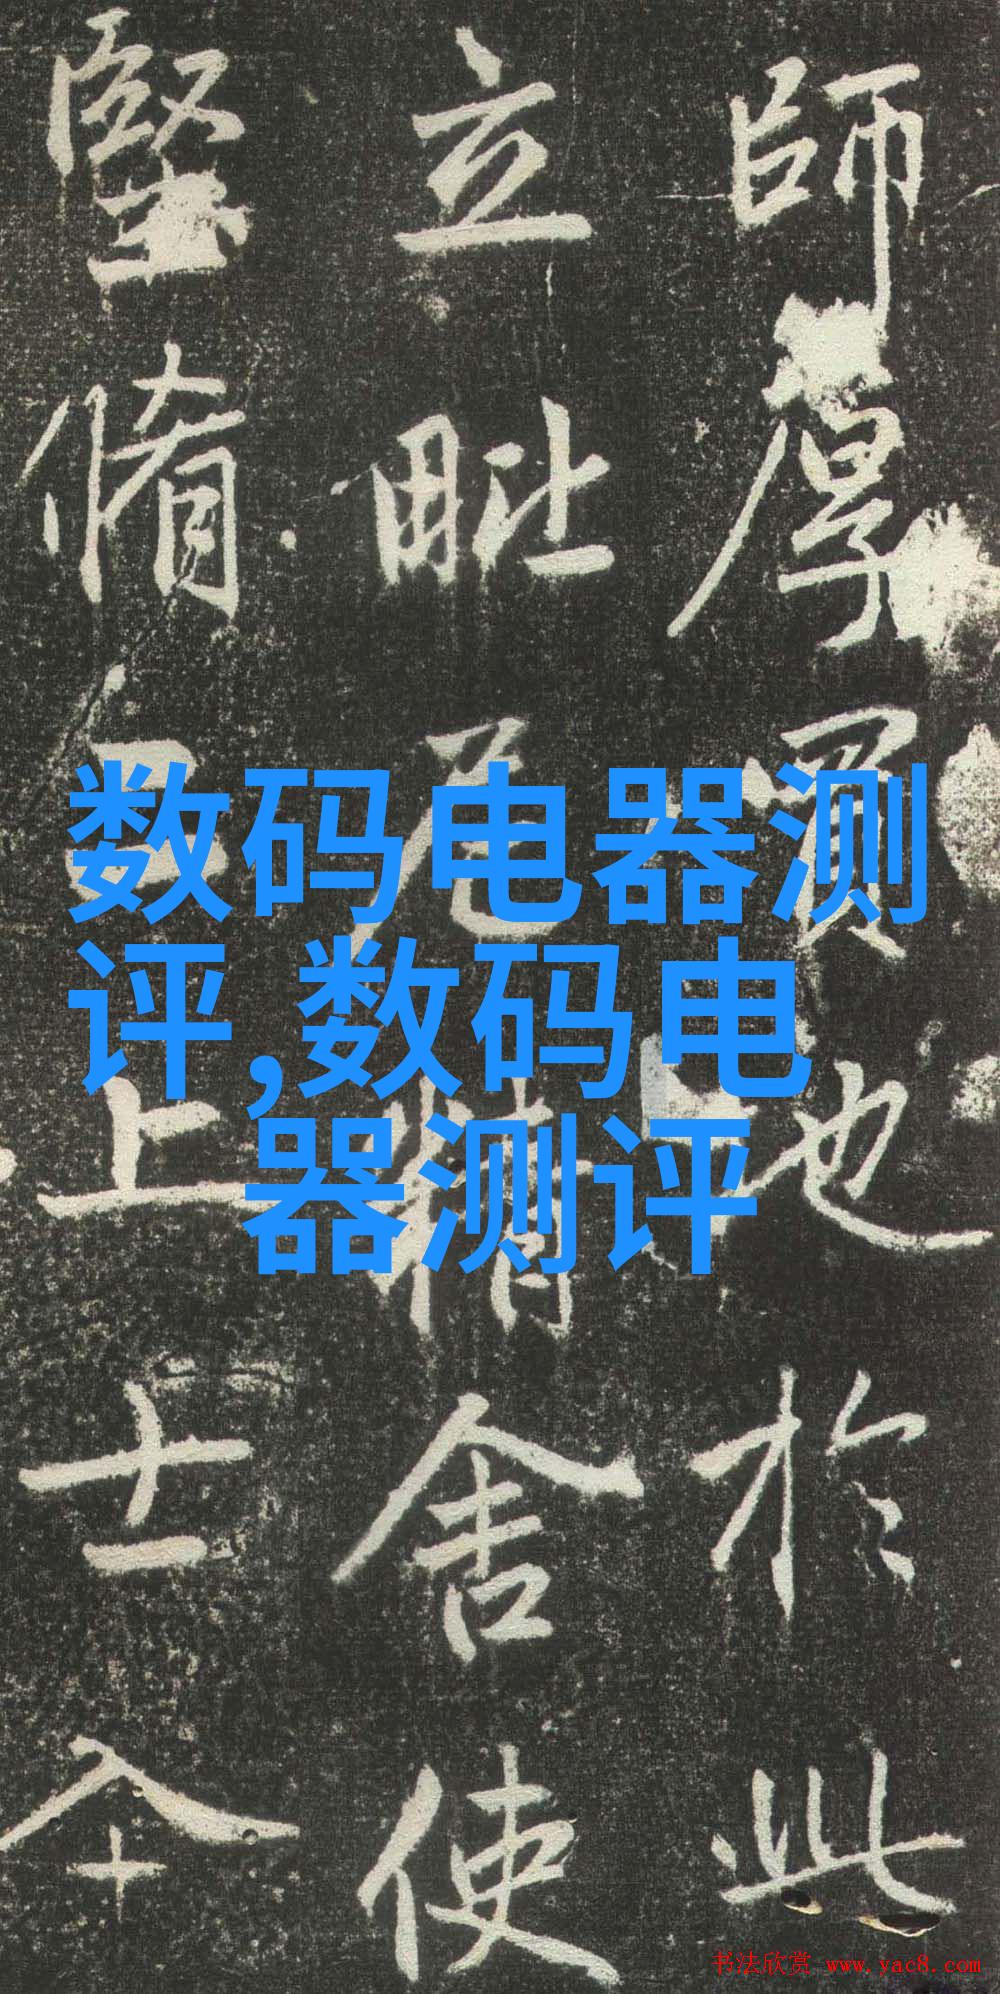 師厚買地於此
立毗尼精舍使
堅脩上士
数码电器测
评,数码电
器测评
书法欣赏 www.yac8.com